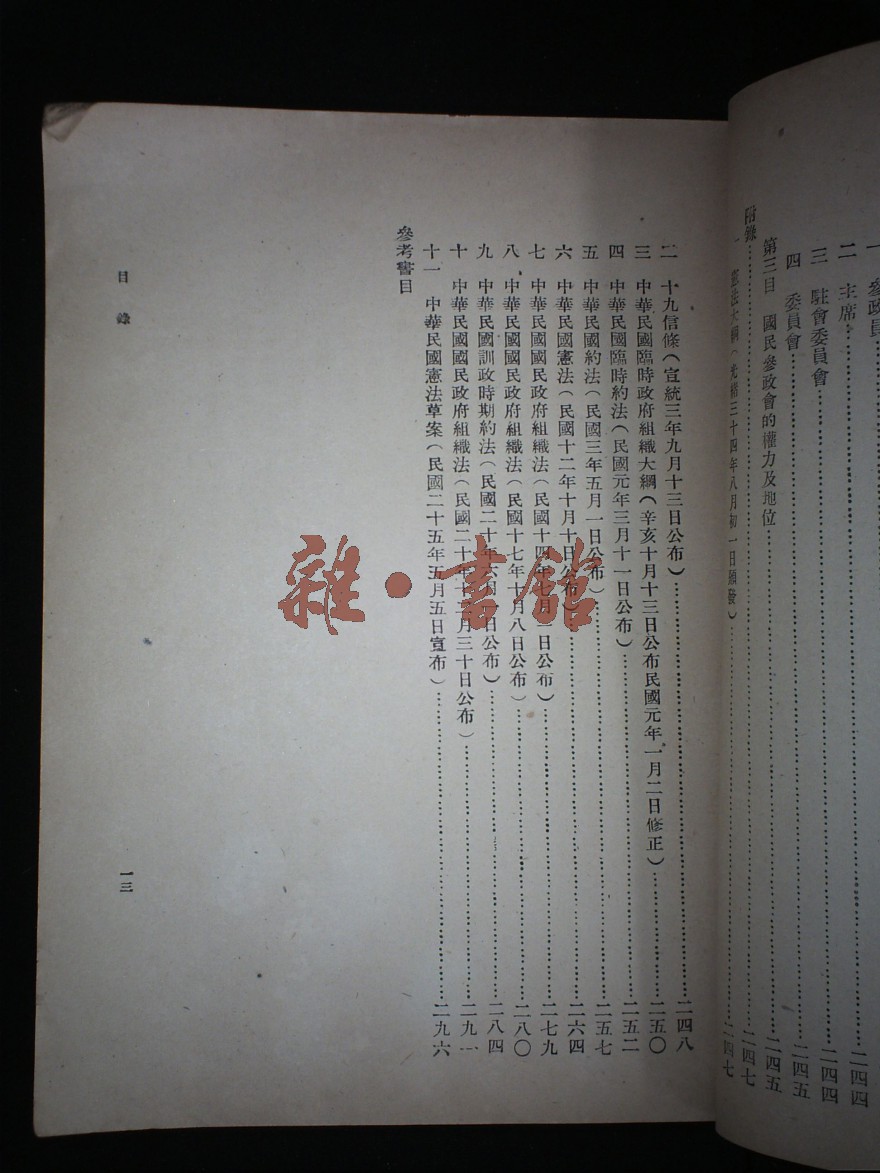 一 參政員
二 主席……二四四
三 駐會委員會……二四四
四 委員會……二四五
第三目 國民參政會的權力及地位……二四五
附錄……二四七
一 憲法大綱(光緒三十四年八月初一日頒發)……二四七
二 十九信條(宣統三年九月十三日公布)……二四八
三 中華民國臨時政府組織大綱(辛亥十月十三日公布民國元年一月二日修正)……二五〇
四 中華民國臨時約法(民國元年三月十一日公布)……二五二
五 中華民國約法(民國三年五月一日公布)……二五七
六 中華民國憲法(民國十二年十月十日公布)……二六四
七 中華民國國民政府組織法(民國十四年七月一日公布)……二七九
八 中華民國國民政府組織法(民國十七年十月八日公布)……二八〇
九 中華民國訓政時期約法(民國二十年六月一日公布)……二八四
十 中華民國國民政府組織法(民國二十年十二月三十日公布)……二九一
十一 中華民國憲法草案(民國二十五年五月五日宣布)……二九六
參考書目
目錄
一三
雜·書館